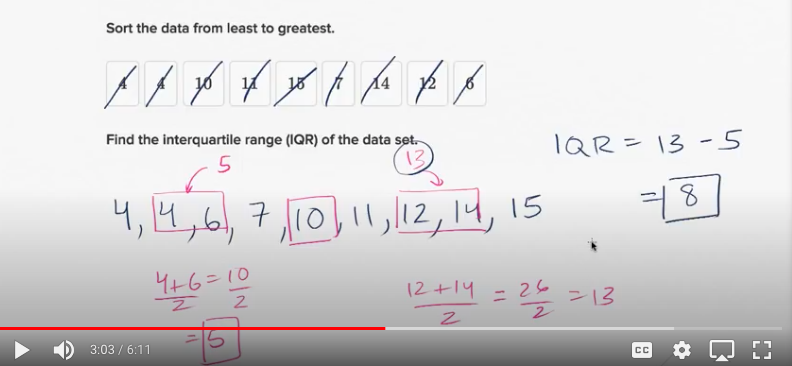 Sort the data from least to greatest.
4 4 10 11 15 7 14 12 6
Find the interquartile range (IQR) of the data set.
5
13
IQR = 13 - 5
= 8
4, 4, 6, 7, 10, 11, 12, 14, 15
4+6/2 = 10/2
= 5
12+14/2 = 26/2 = 13
3:03 / 6:11
CC